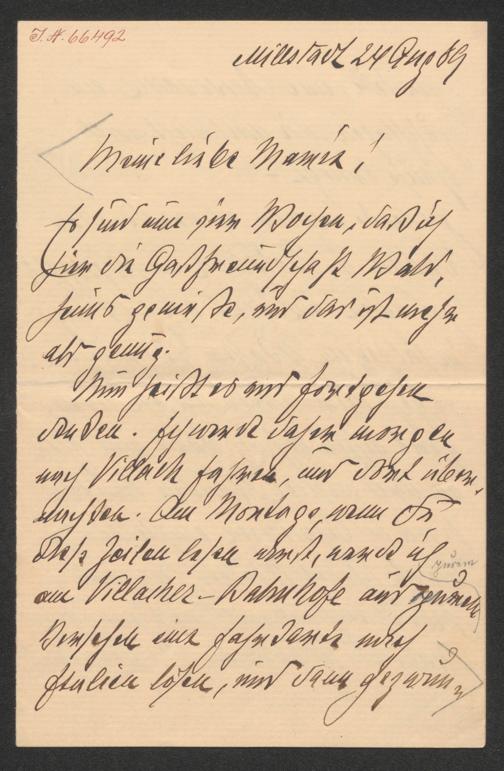 I. N. 66492
Millstadt 24 Aug 89
Meine liebe Mamis!
Es sind nun zwei Wochen, daß ich
hier die Gastfreundschaft Wald,
heims genieße, und das ist mehr
als genug.
Nun heißt es ans fortgehen
denken. Ich werde daher morgen
nach Villach fahren, und dort über,
nachten. Am Montage, wenn Du
diese Zeilen lesen wirst, werde ich
am Villacher-Bahnhofe aus
Versehen eine Fahrkarte nach
Italien lösen, und dann gezwun,